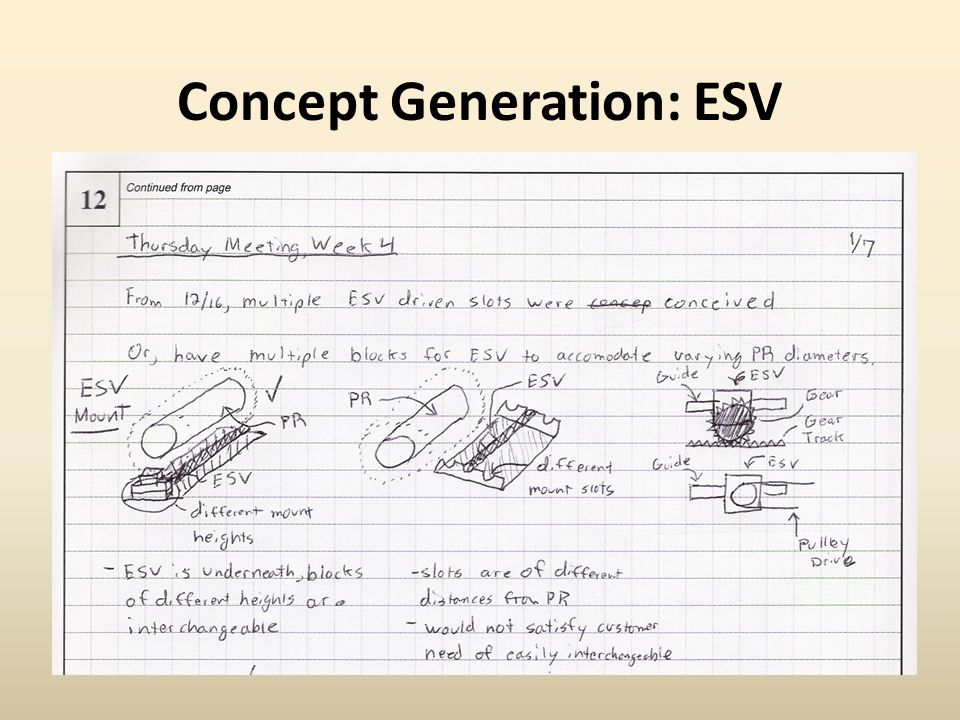 Concept Generation: ESV
12
Continued from page
Thursday Meeting, Week 4
1/7
From 12/16, multiple ESV driven slots were concep conceived
Or, have multiple blocks for ESV to accomodate varying PR diameters.
ESV
Mount
PR
ESV
different mount
heights
PR
ESV
different
mount slots
Guide
ESV
Gear
Gear
Track
Guide
ESV
Pulley
Drive
- ESV is underneath, blocks
of different heights are
interchangeable
- slots are of different
distances from PR
- would not satisfy customer
need of easily interchangeable